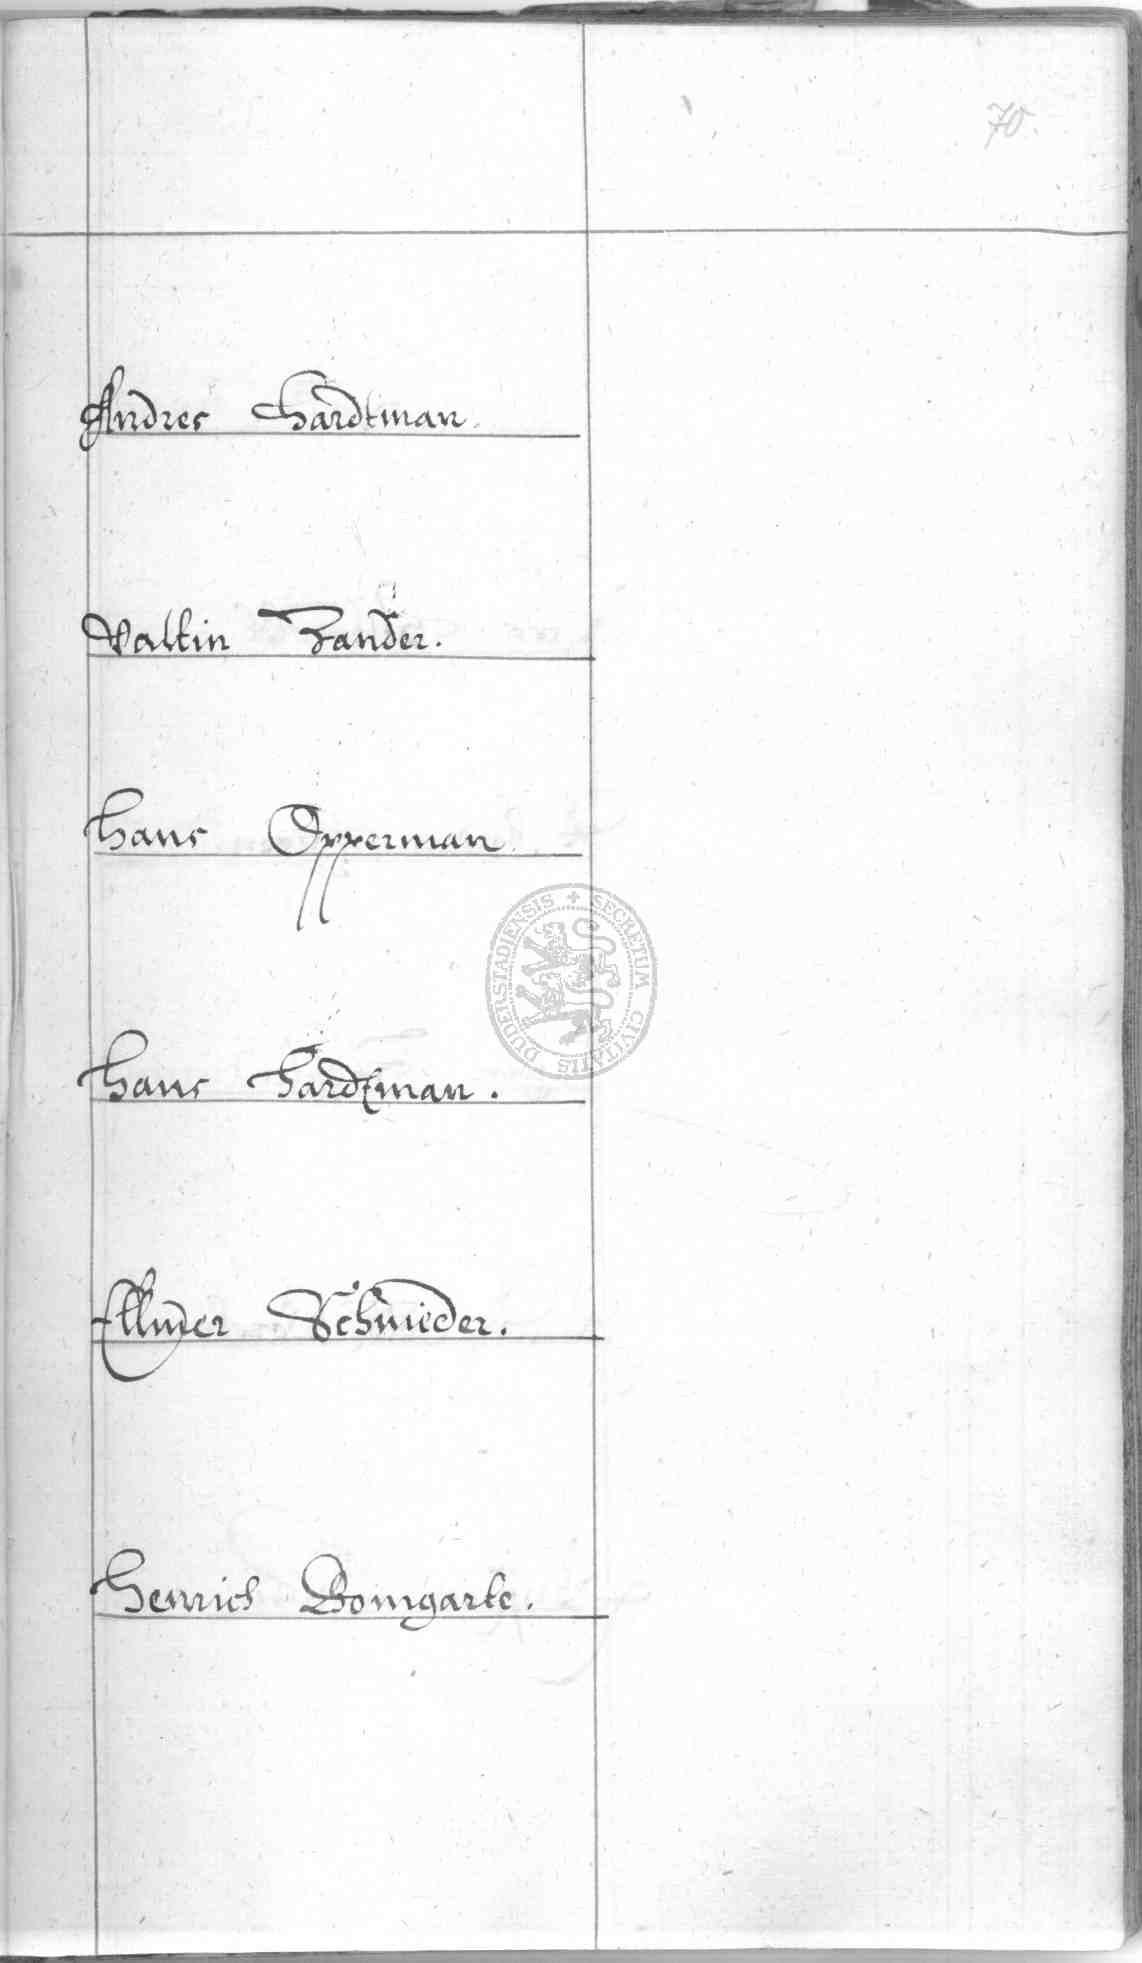 70.
Andres Hardtman.
Valtin Zander.
Hans Opperman
SECRETUM CIVITATIS DUDERSTADIENSIS
Hans Hardtman.
Schnieder.
Henrich Bomgarte.